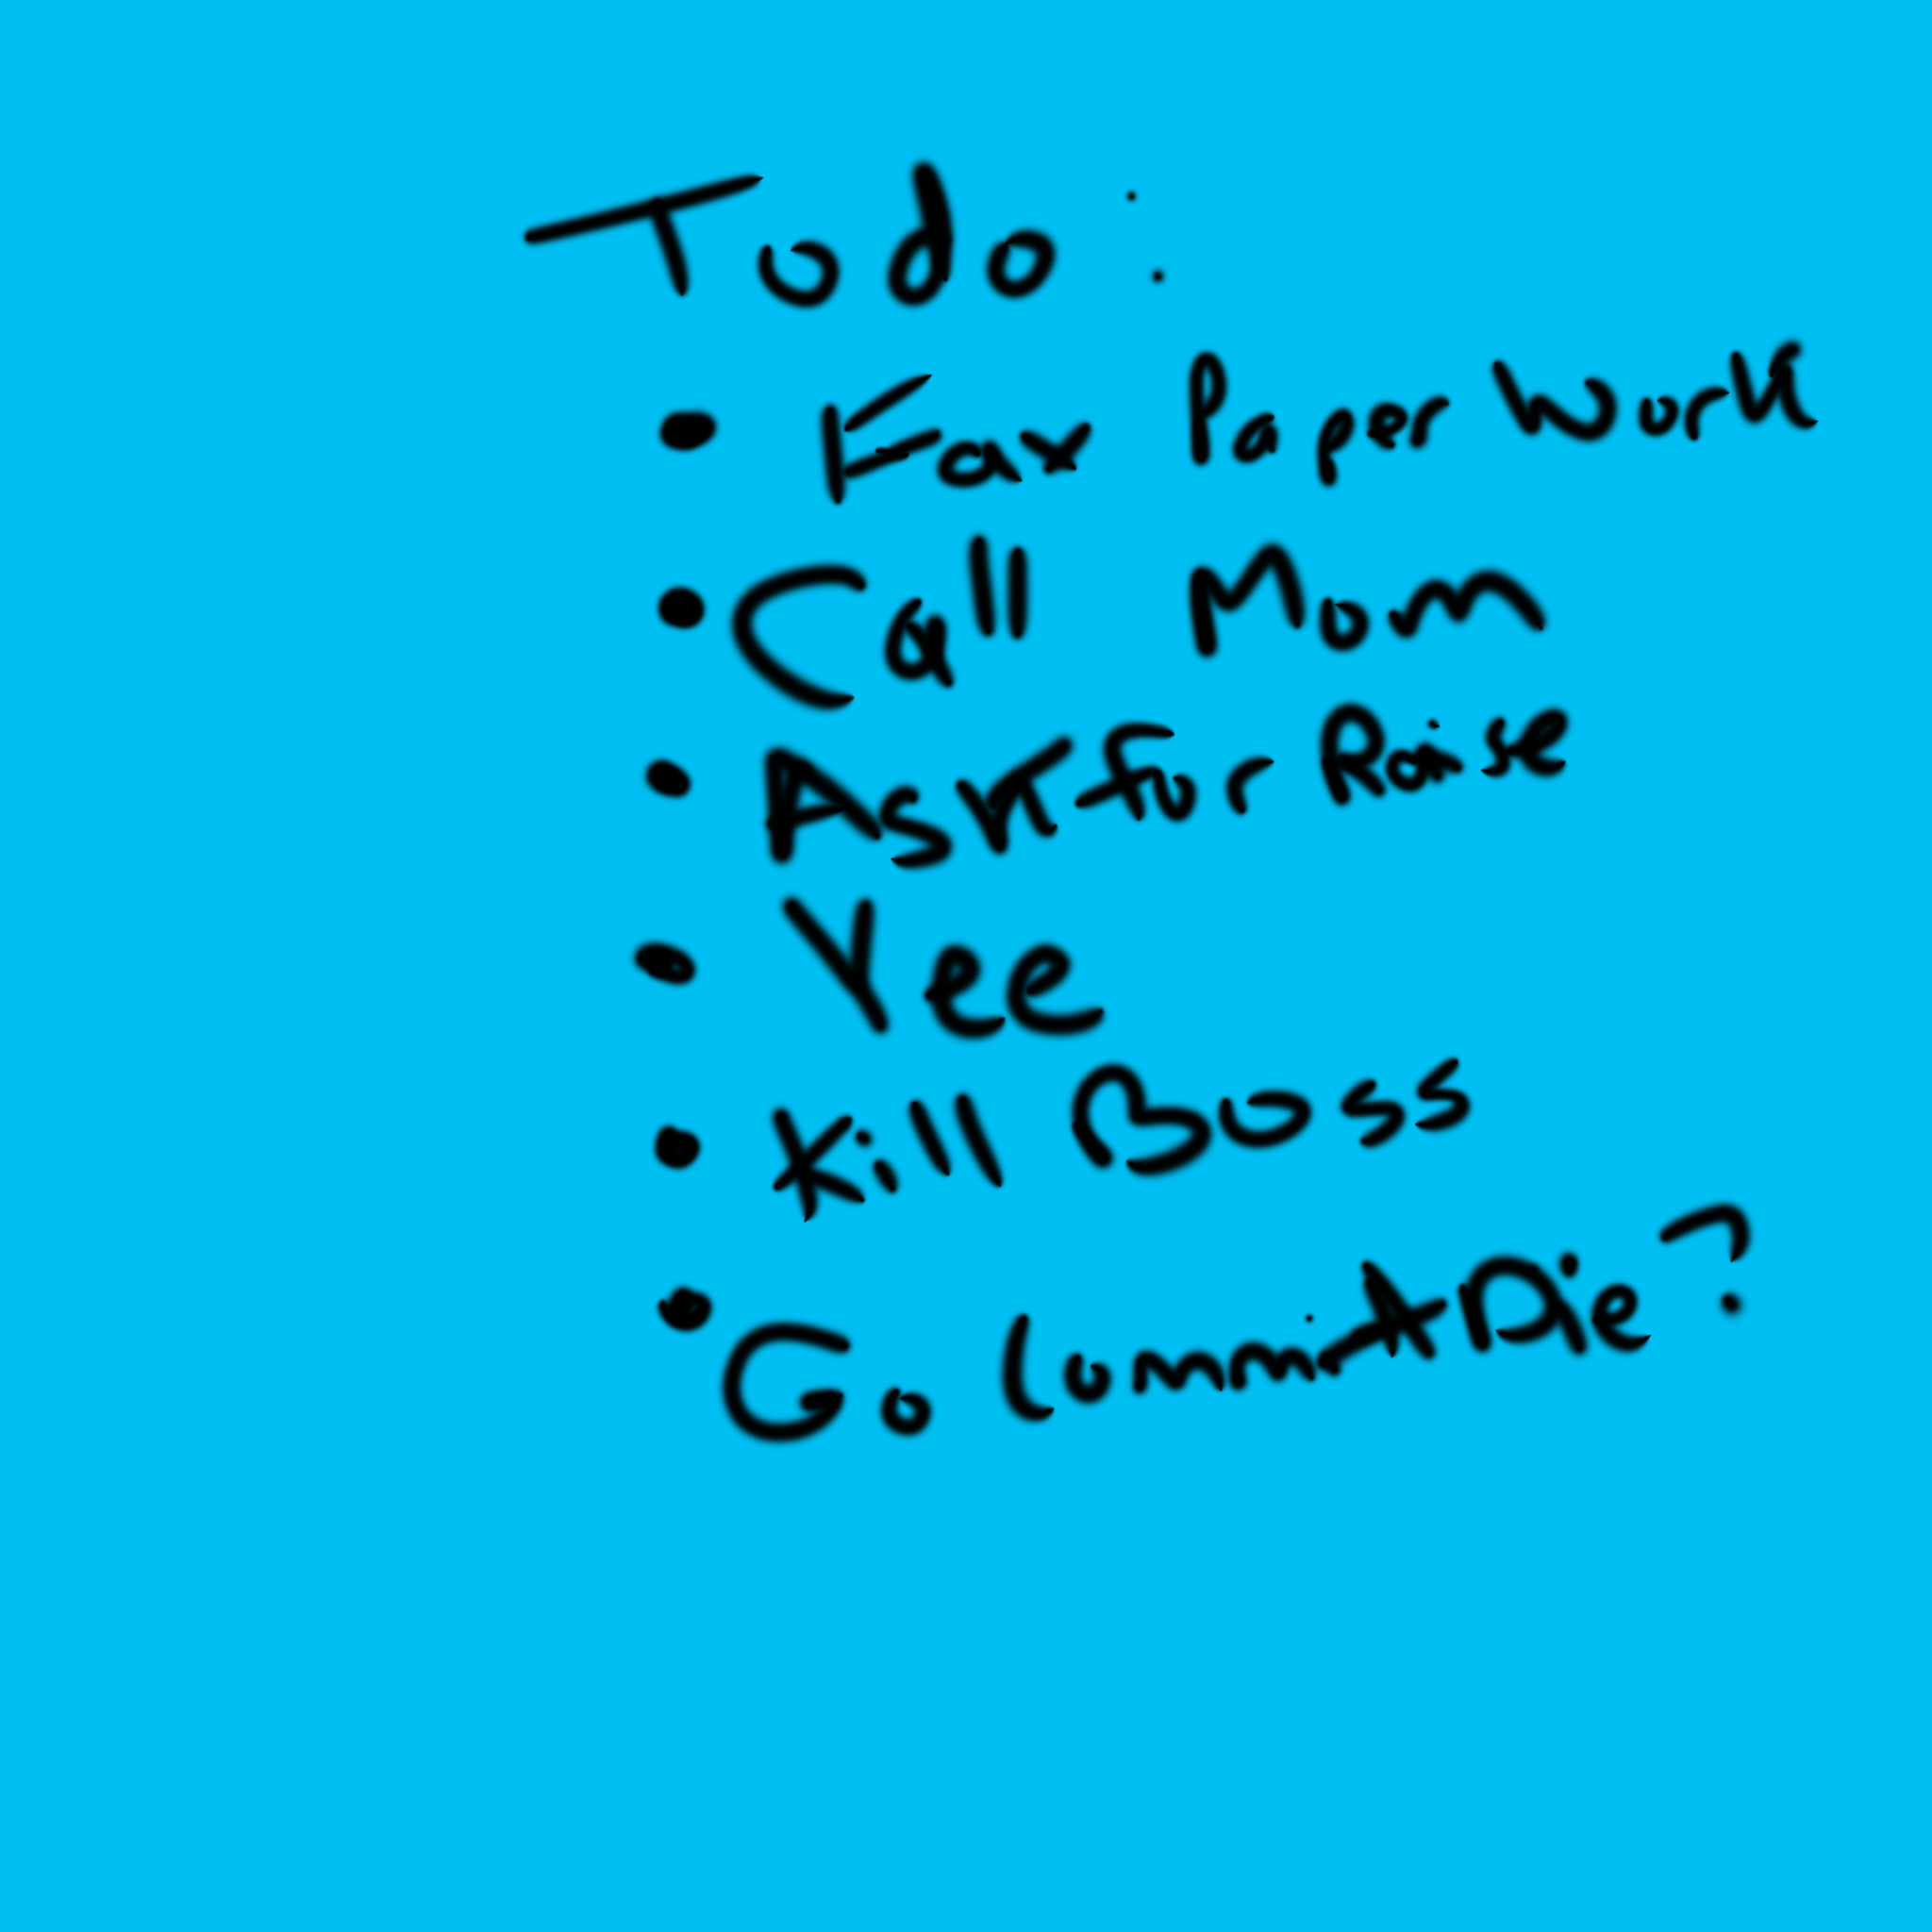 Todo:
• Fax Paper Work
• Call Mom
• Ask for Raise
• Yee
• Kill Boss
• Go Commit Die?